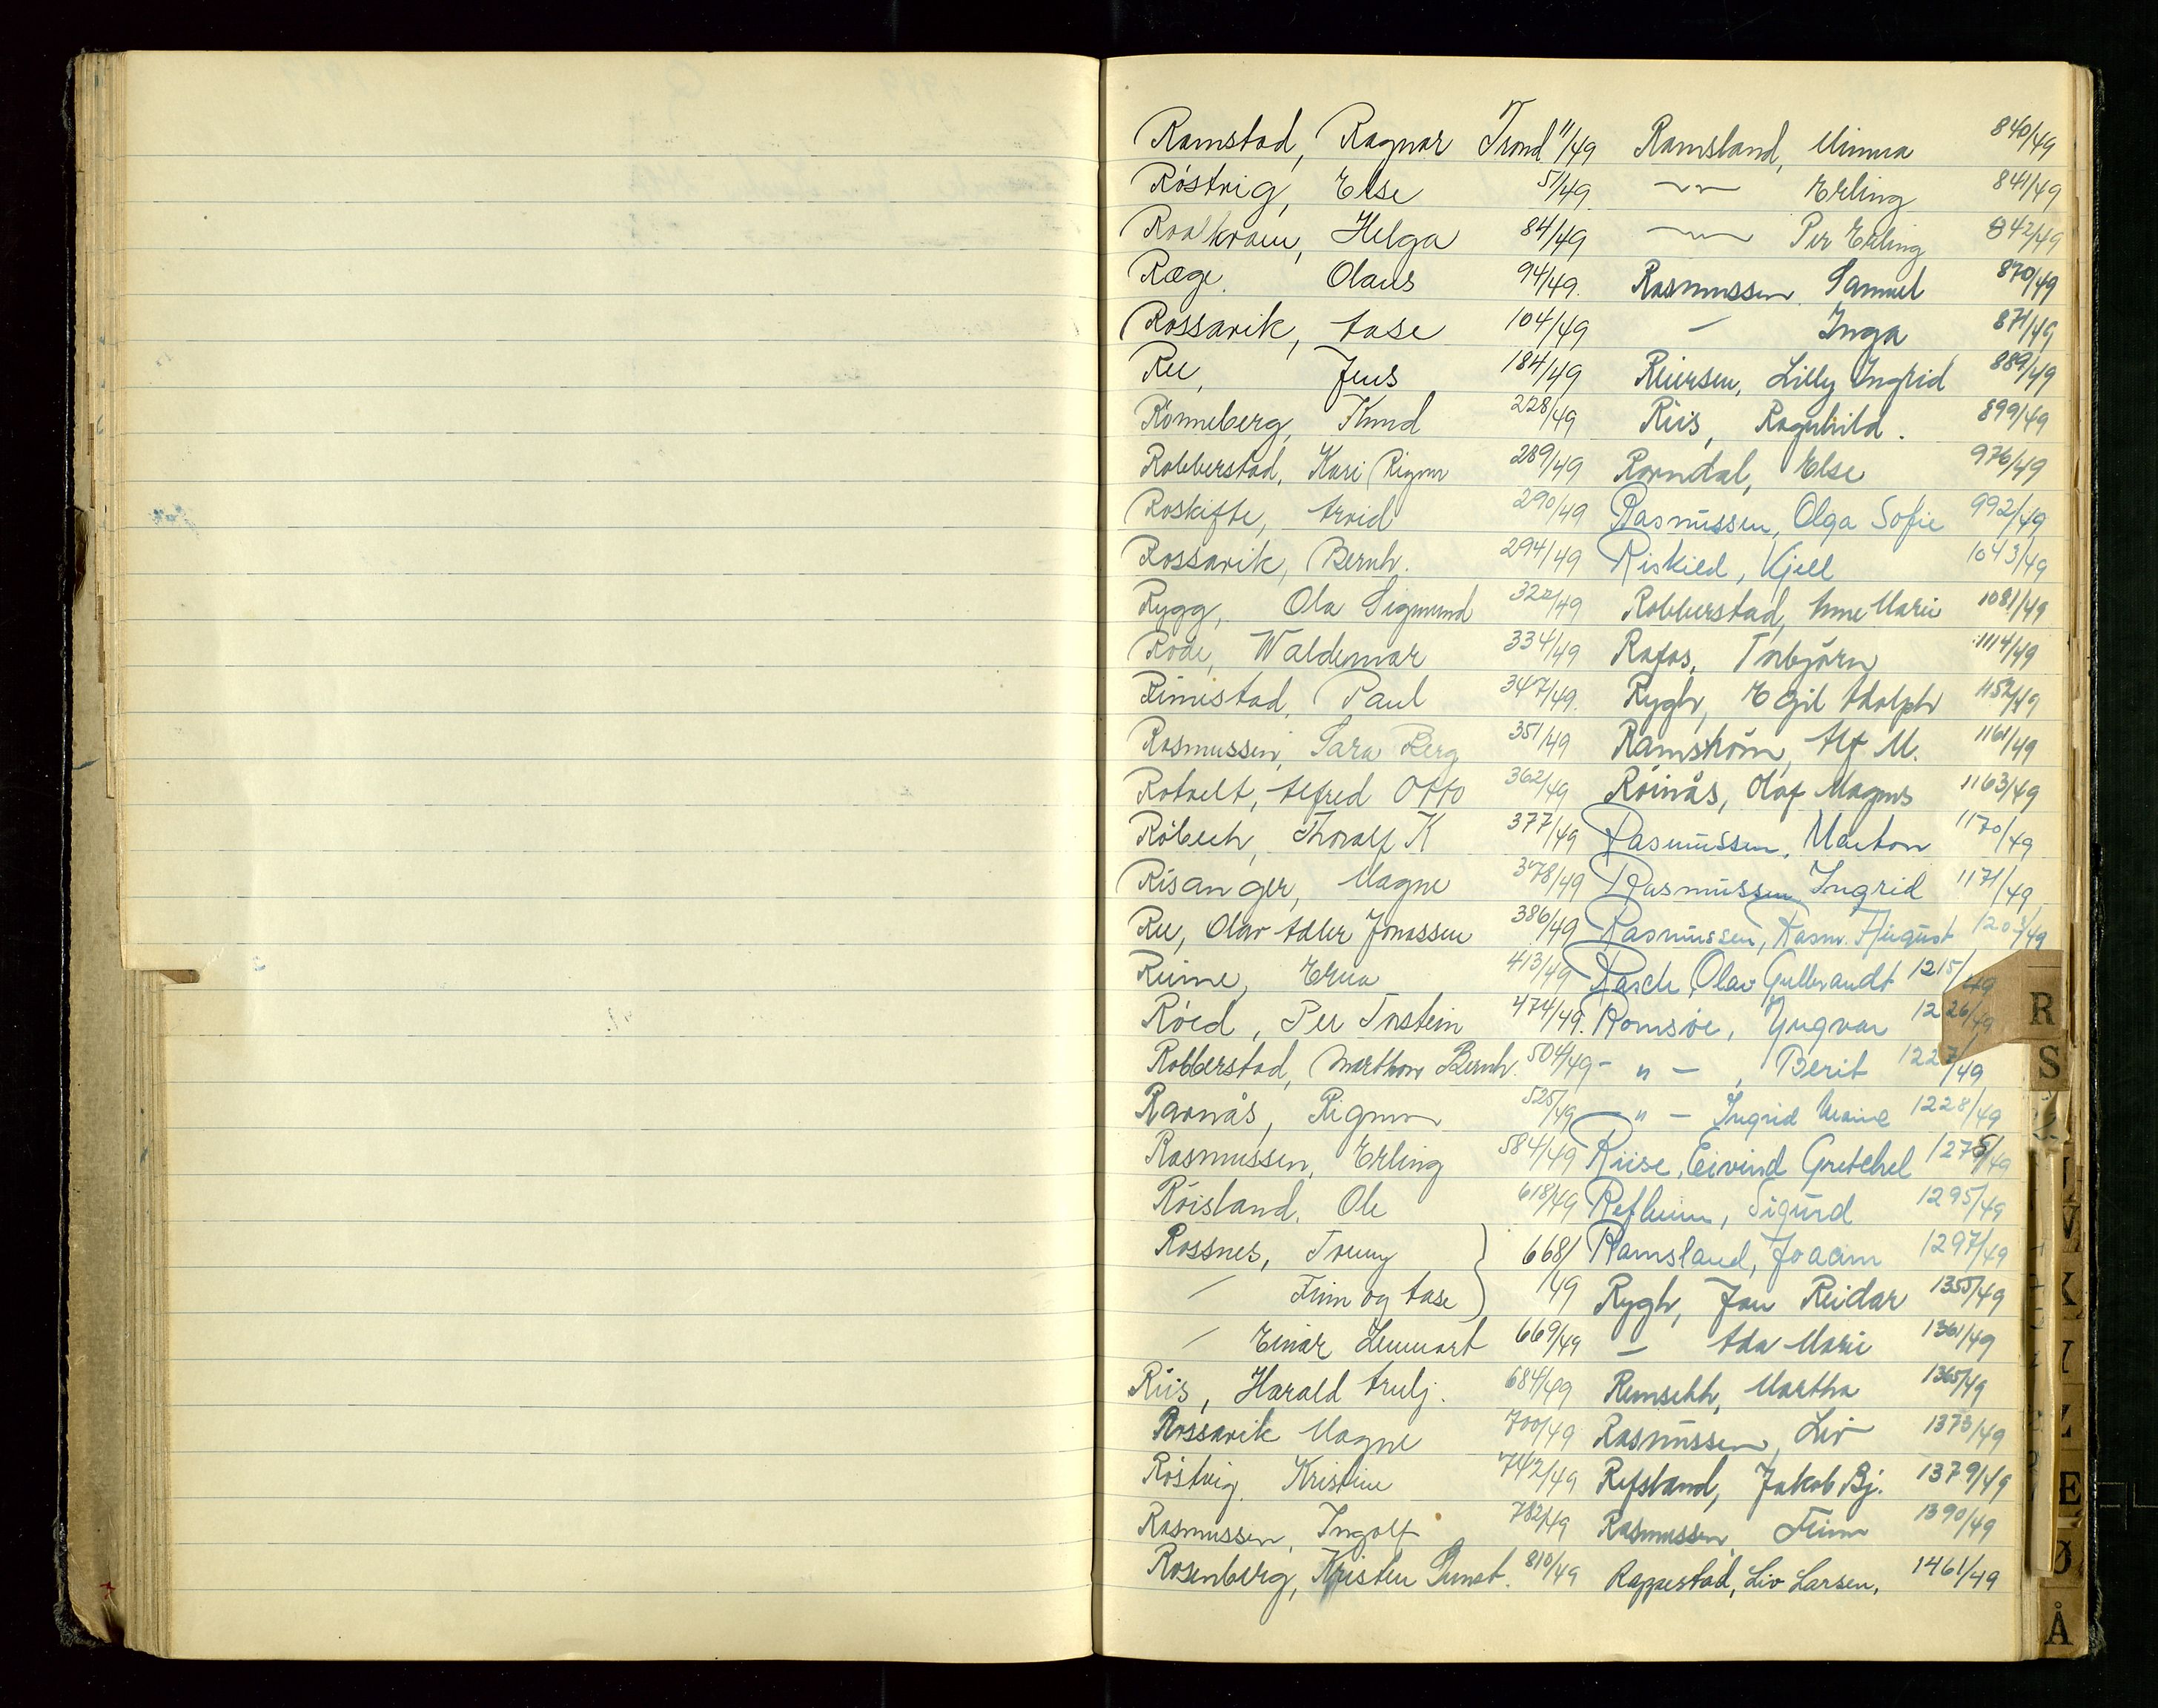 Ramstad, Ragnar Trond 11/49
Röstvig, Else 51/49
Helga 84/49
Ræge. Olaus 94/49.
Rossavik, Aase 104/49
Ree, Jens 184/49
Rönneberg, Knud 228/49
Robberstad, Kari Rigmor 289/49
Roskifte, Arvid 290/49
Rossavik, Bernh. 294/49
Rygg, Ola Sigmund 322/49
Rode, Waldemar 334/49
Rimestad, Paul 347/49.
Rasmussen, Sara Berg 351/49
Rotvelt, Alfred Otto 362/49
Röbech, Thoralf K 377/49
Risanger, Magne 378/49
Ree, Olav Adler Jonassen 386/49
Reime, Erna 413/49
Röed, Per Torstein 474/49.
Robberstad, Marthon Bernh. 504/49
Ravnås, Rigmor 525/49
Rasmussen, Erling 584/49
Röisland, Ole 618/49
Rossnes, Tommy } 668/
— Finn og Aase } /49
— Einar Lennart 669/49
Riis, Harald Arulj. 684/49
Rossavik Magne 700/49
Röstvig. Kristine 742/49
Rasmussen, Ingolf 782/49
Rosenberg, Kristen Gunst. 810/49
Ramsland, Minna 840/49
—"— Erling 841/49
—"— Per Erling 842/49
Rasmussen, Samuel 870/49
— Inga 871/49
Reiersen, Lilly Ingrid 889/49
Riis, Ragnhild. 899/49
Ravndal, Else 976/49
Rasmussen, Olga Sofie 992/49
Riskild, Kjell 1043/49
Robberstad, Anne Marie 1081/49
Rafos, Torbjørn 1114/49
Rygh, Egil Adolph 1152/49
Ramström, Alf M. 1161/49
Röinås, Olaf Magnus 1163/49
Rasmussen, Marton 1170/49
Rasmussen Ingrid 1171/49
Rasmussen, Rasm. August 1203/49
Rasch, Olav Gulbrandt 1215/49
Romsöe, Yngvar 1226/49
- " - , Berit 1227/49
- " - Ingrid Marie 1228/49
Riise, Eivind Gretchel 1275/49
Refheim, Sigurd 1295/49
Ramsland, Joacim 1297/49
Rygh, Jan Reidar 1355/49
— Ada Marie 1361/49
Martha 1365/49
Rasmussen, Liv 1373/49
Refsland, Jakob Bj. 1379/49
Rasmussen, Finn 1390/49
Rappestad, Liv Larsen, 1461/49
R
S
V
K
Y
Z
E
Ø
Å